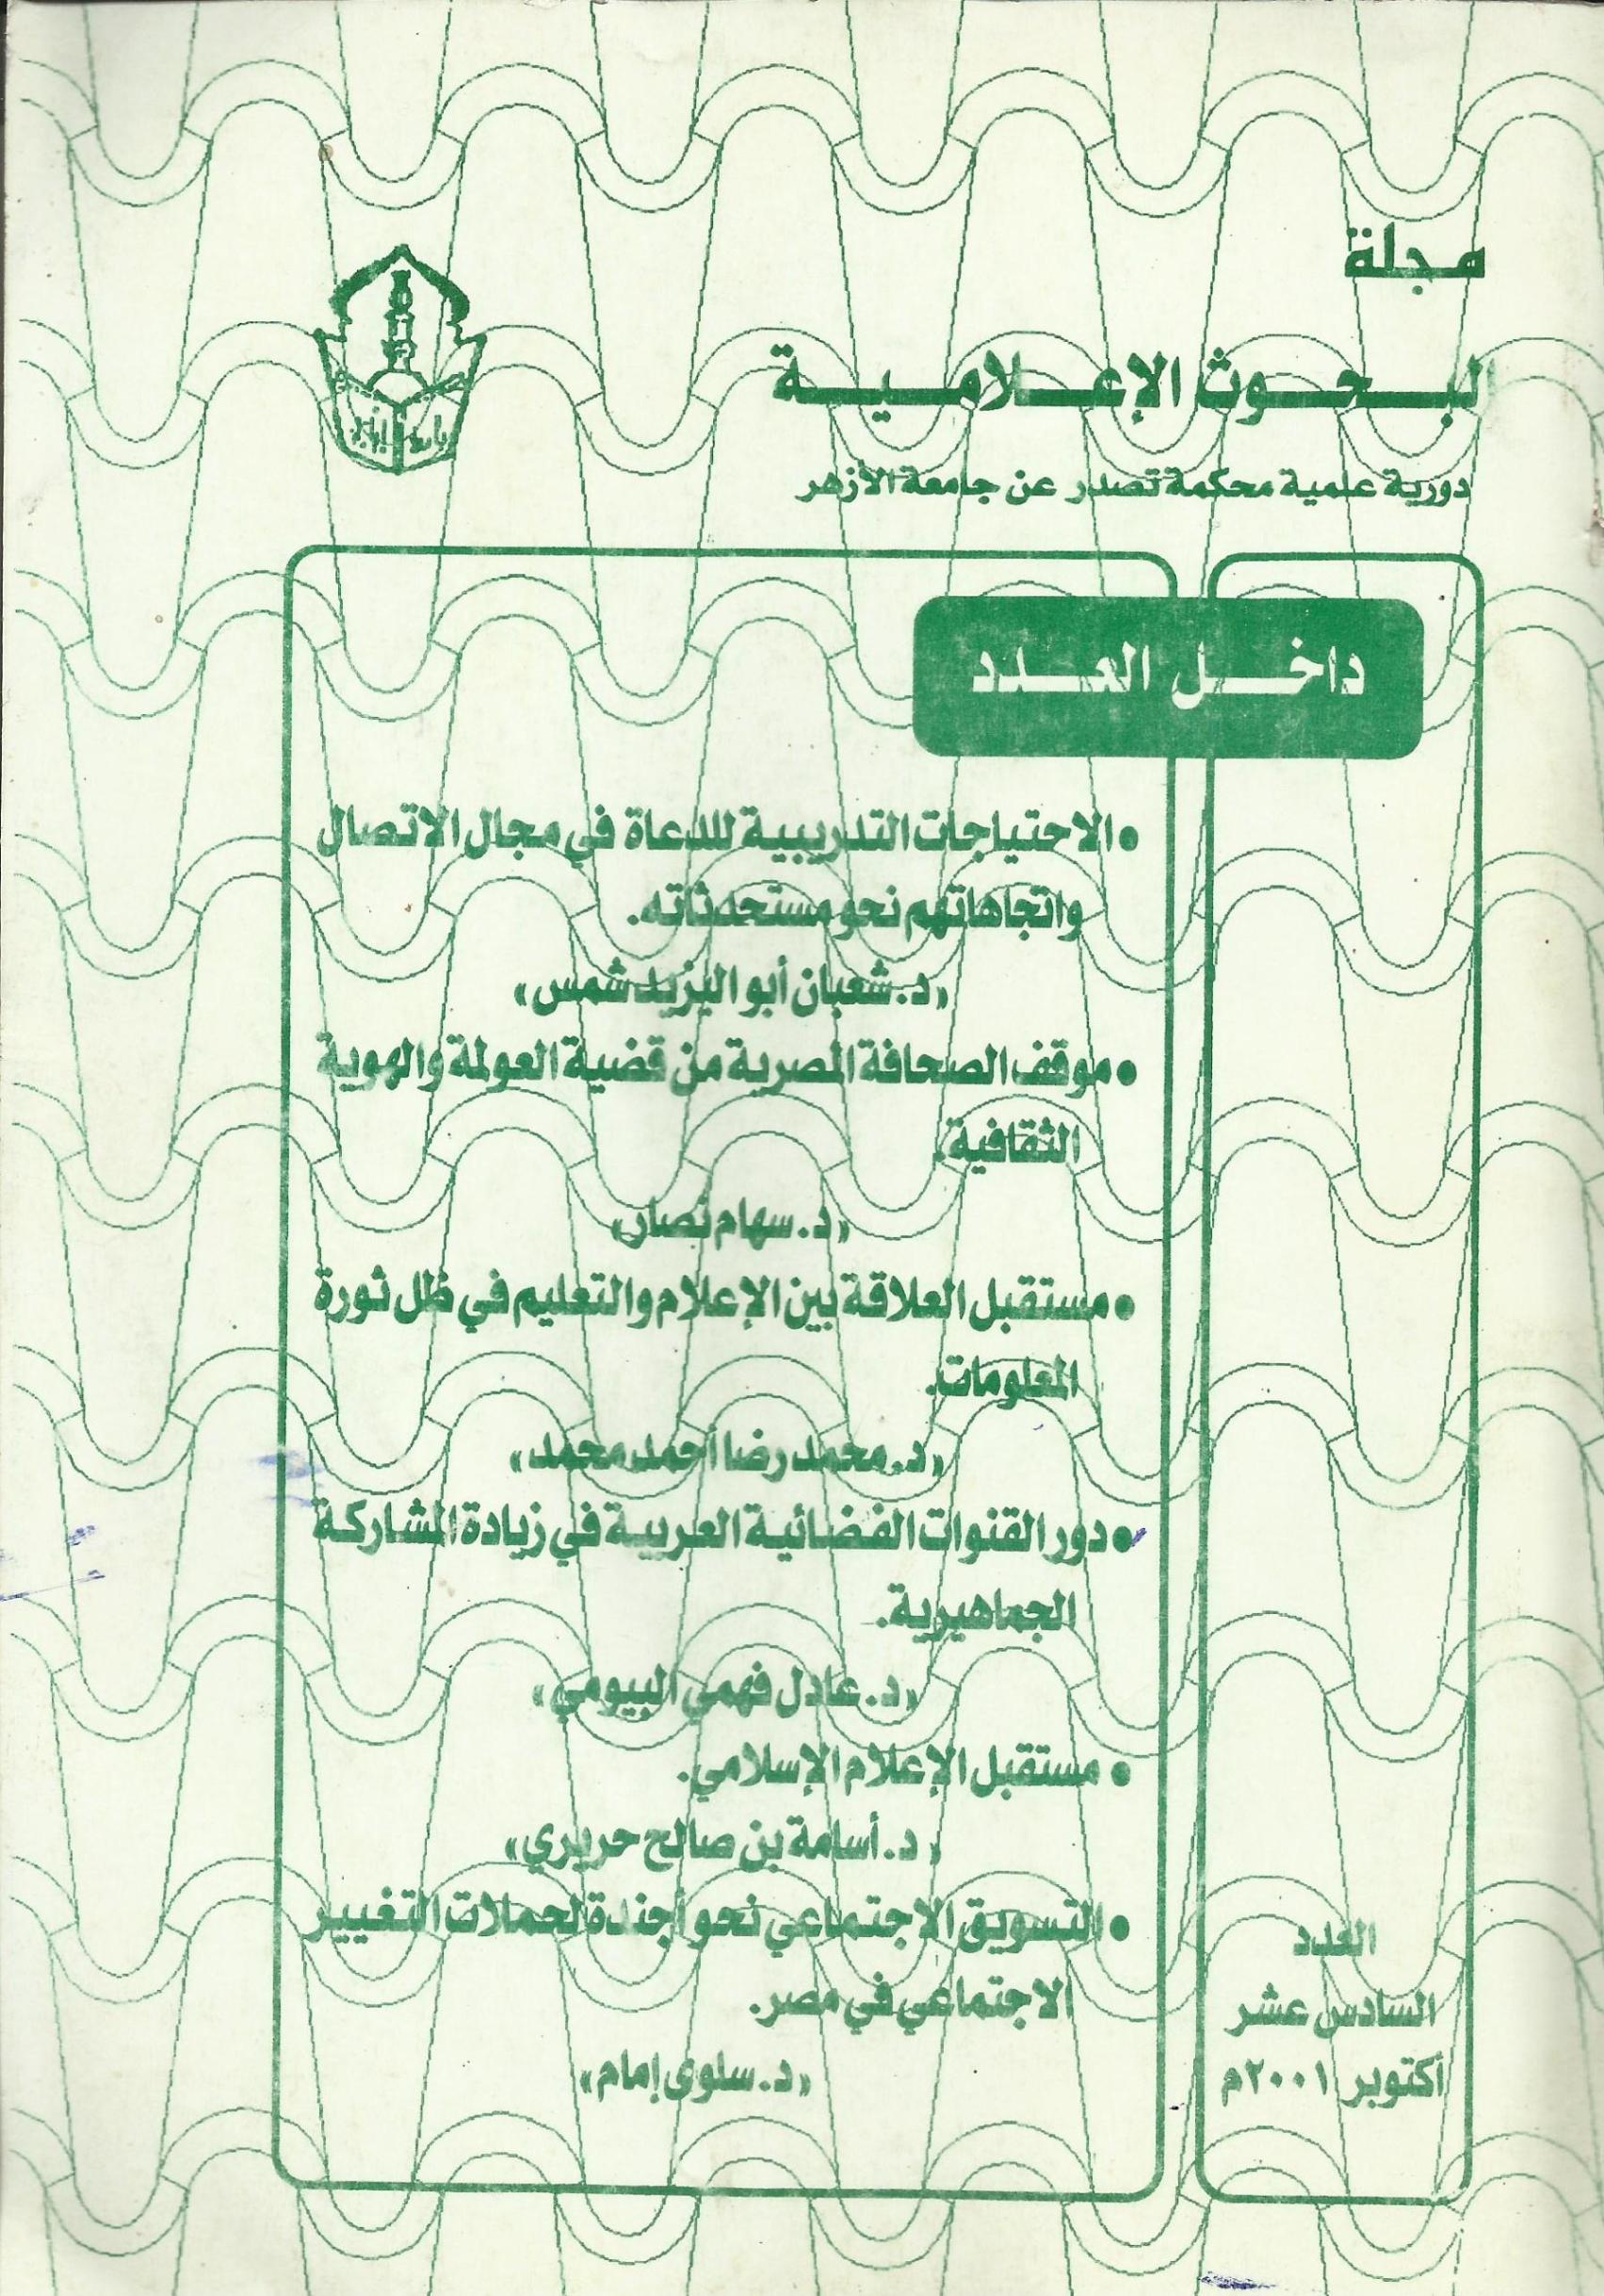 مجلة
البحوث الإعلامية
دورية علمية محكمة تصدر عن جامعة الأزهر
داخل العدد
• الاحتياجات التدريبية للدعاة في مجال الاتصال
واتجاهاتهم نحو مستحدثاته.
«د. شعبان أبو اليزيد شمس»
• موقف الصحافة المصرية من قضية العولمة والهوية
الثقافية.
«د. سهام نصار»
• مستقبل العلاقة بين الإعلام والتعليم في ظل ثورة
المعلومات.
«د. محمد رضا أحمد محمد»
• دور القنوات الفضائية العربية في زيادة المشاركة
الجماهيرية.
«د. عادل فهمي البيومي»
• مستقبل الإعلام الإسلامي.
«د. أسامة بن صالح حريري»
• التسويق الاجتماعي نحو أجندة لحملات التغيير
الاجتماعي في مصر.
«د. سلوى إمام»
العدد
السادس عشر
أكتوبر ٢٠٠١م